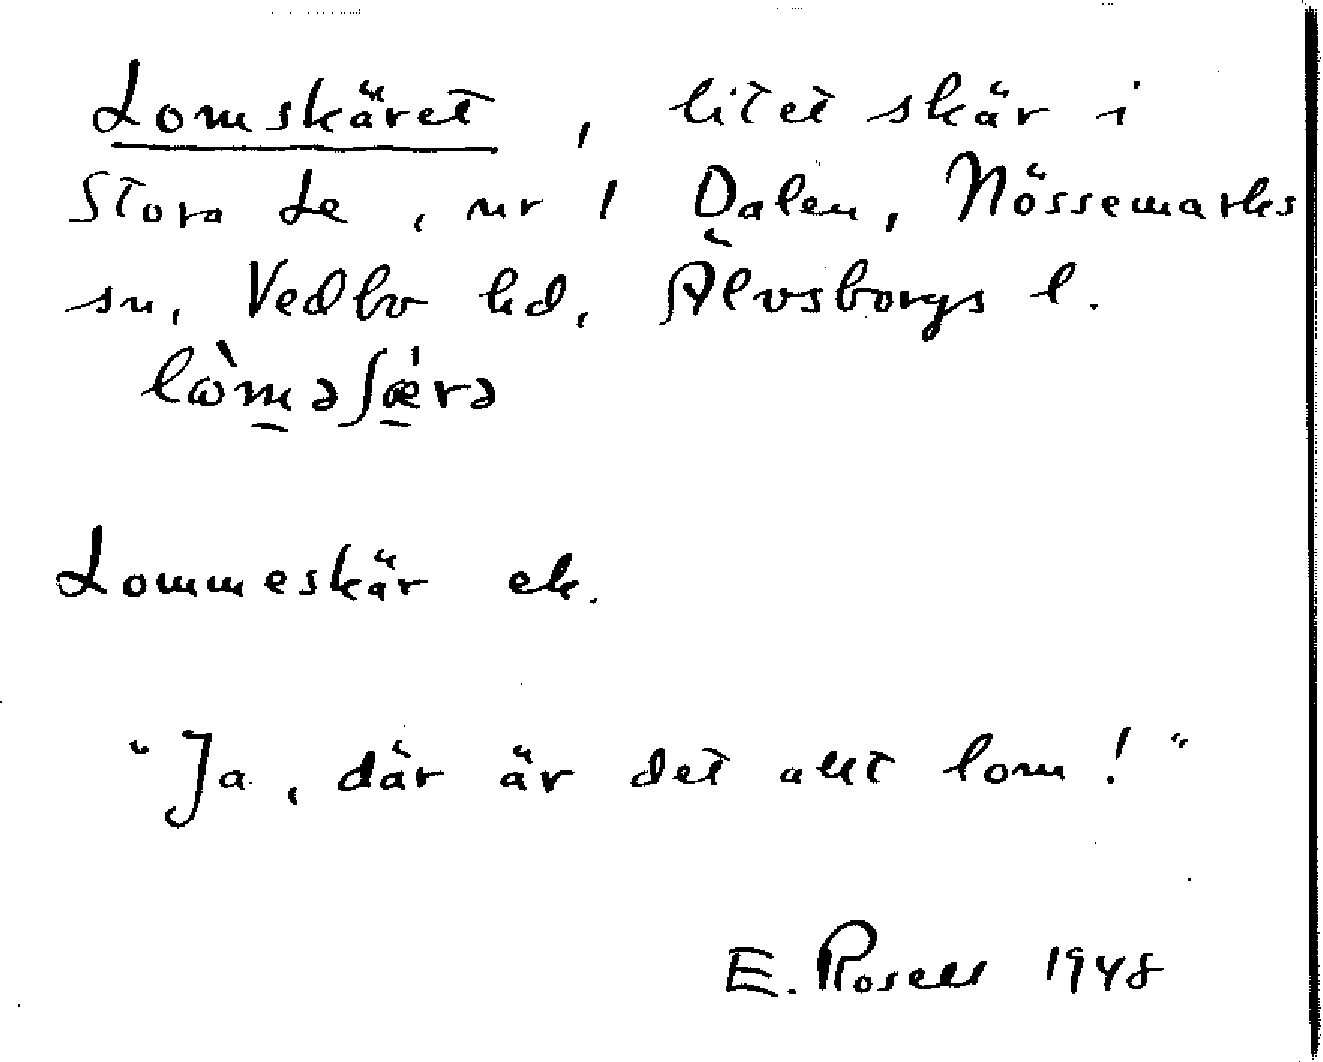 Lomskäret, litet skär i
Stora Le, nr 1 Dalen, Nössemarks
sn, Vedbo hd, Älvsborgs l.
lɷ̀m̲əʃǽ̲rə
Lommeskär ek.
"Ja, där är det allt lom!"
E. Rosell 1948